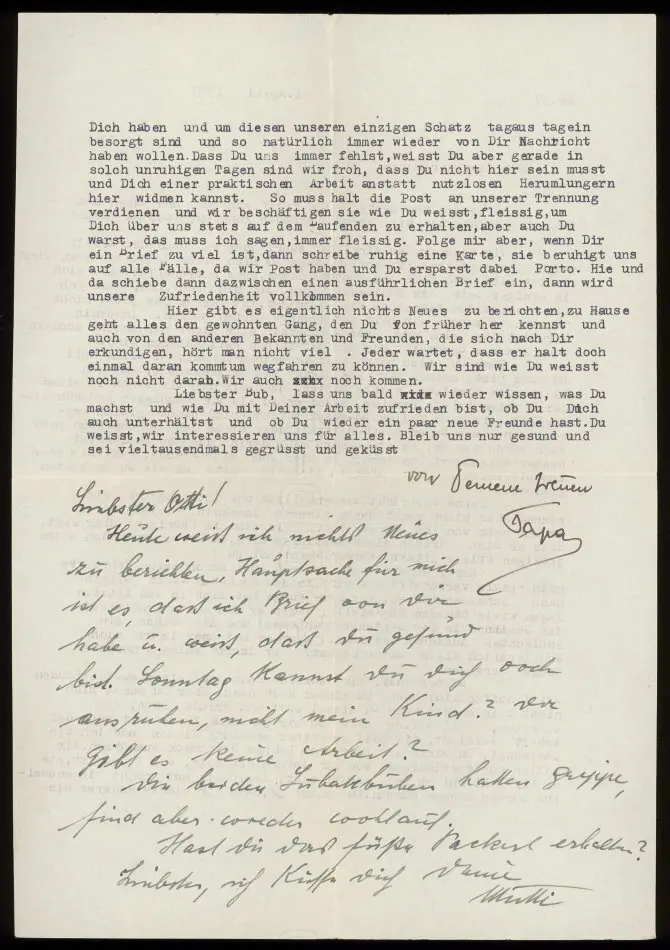 Dich haben und um diesen unseren einzigen Schatz tagaus tagein
besorgt sind und so natürlich immer wieder von Dir Nachricht
haben wollen.Dass Du uns immer fehlst,weisst Du aber gerade in
solch unruhigen Tagen sind wir froh, dass Du nicht hier sein musst
und Dich einer praktischen Arbeit anstatt nutzlosen Herumlungern
hier widmen kannst. So muss halt die Post an unserer Trennung
verdienen und wir beschäftigen sie wie Du weisst,fleissig,um
Dich über uns stets auf dem Laufenden zu erhalten,aber auch Du
warst, das muss ich sagen,immer fleissig. Folge mir aber, wenn Dir
ein Brief zu viel ist,dann schreibe ruhig eine Karte, sie beruhigt uns
auf alle Fälle, da wir Post haben und Du ersparst dabei Porto. Hie und
da schiebe dann dazwischen einen ausführlichen Brief ein, dann wird
unsere Zufriedenheit vollkommen sein.
Hier gibt es eigentlich nichts Neues zu berichten,zu Hause
geht alles den gewohnten Gang, den Du fon früher her kennst und
auch von den anderen Bekannten und Freunden, die sich nach Dir
erkundigen, hört man nicht viel . Jeder wartet, dass er halt doch
einmal daran kommtum wegfahren zu können. Wir sind wie Du weisst
noch nicht daran.Wir auch noch kommen.
Liebster Bub, lass uns bald wieder wissen, was Du
machst und wie Du mit Deiner Arbeit zufrieden bist, ob Du Dich
auch unterhältst und ob Du wieder ein paar neue Freunde hast.Du
weisst,wir interessieren uns für alles. Bleib uns nur gesund und
sei vieltausendmals gegrüsst und geküsst
von Deinem treuen
Papa
Liebster Otti!
Heute weiß ich nichts Neues
zu berichten, Hauptsache für mich
ist es, daß ich Brief von dir
habe u. weiß, daß du gesund
bist. Sonntag kannst du dich doch
ausruhen, nicht mein Kind? Da
gibt es keine Arbeit?
Die beiden hatten Grippe,
sind aber wieder wohlauf.
Hast du das süße Packerl erhalten?
Liebster, ich küsse dich deine
Mutti